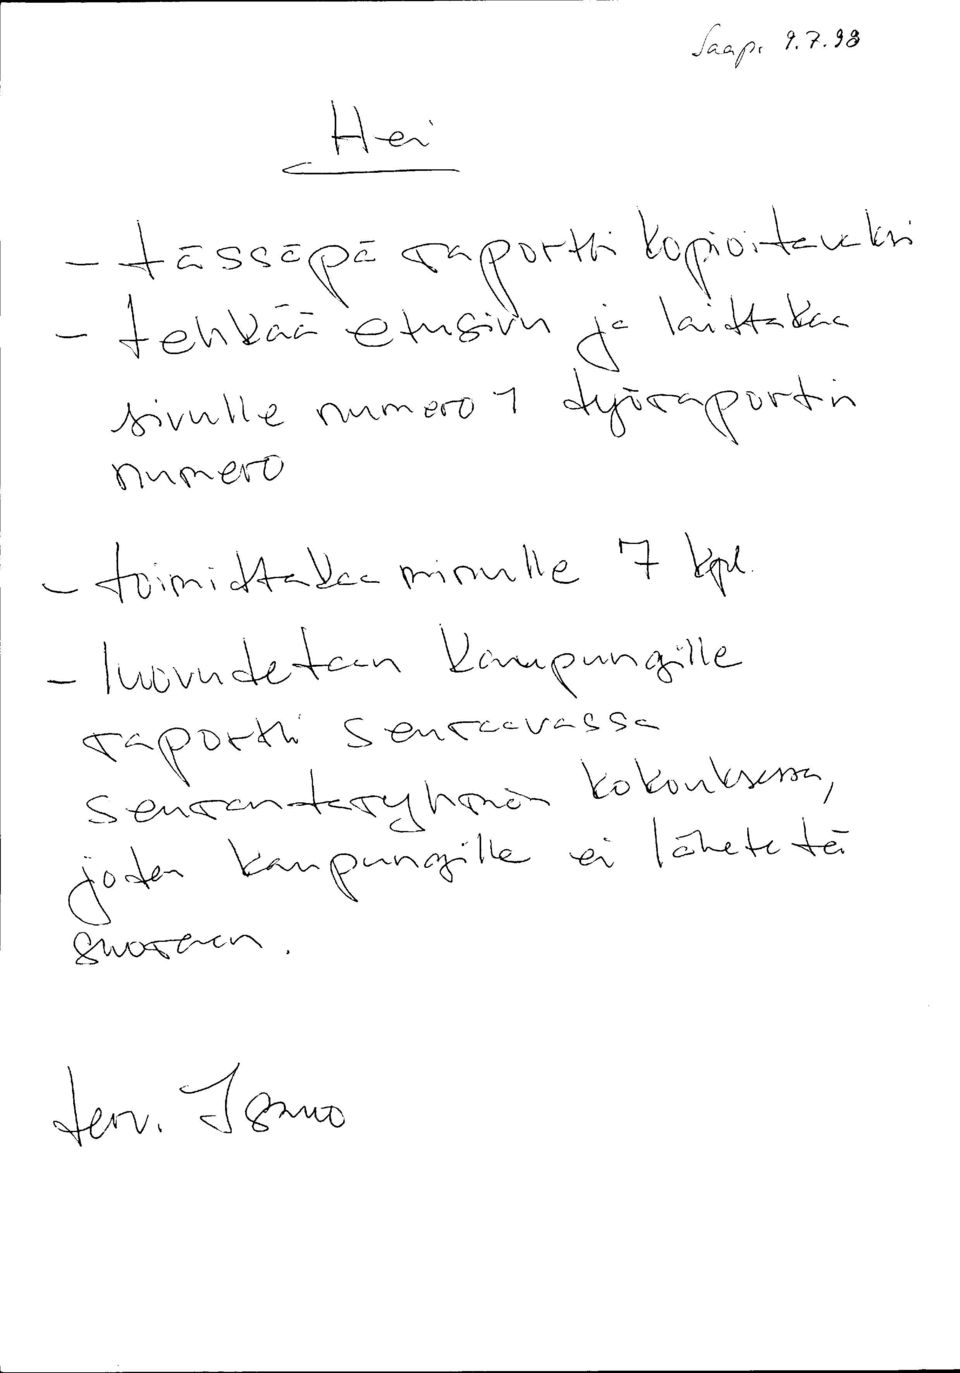 Saap. 9.7.98
Hei
- tässäpä raportti kopioitavaksi
- tehkää etusivu ja laittakaa
sivulle numero 1 työraportin
numero
- toimittakaa minulle 7 kpl.
- luovutetaan kaupungille
raportti seuraavassa
seurantaryhmän kokouksessa,
joten kaupungille ei lähetetä
suoraan.
terv. Ismo